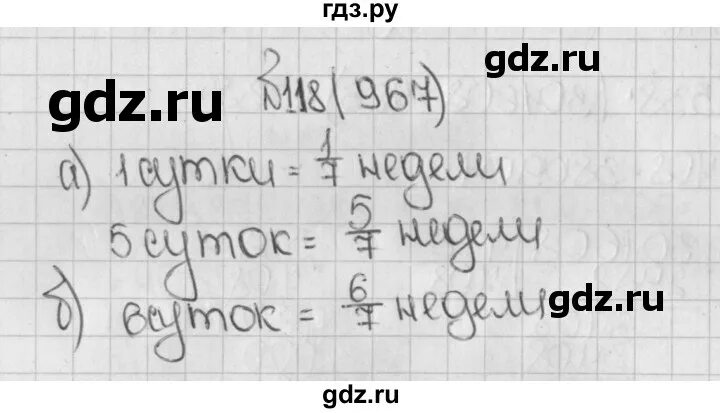 гдз.ру
gdz.ru
gdz.ru
№118 (967)
а) 1 сутки = 1/7 недели
5 суток = 5/7 недели
б) 6 суток = 6/7 недели
gdz.ru
gdz.ru